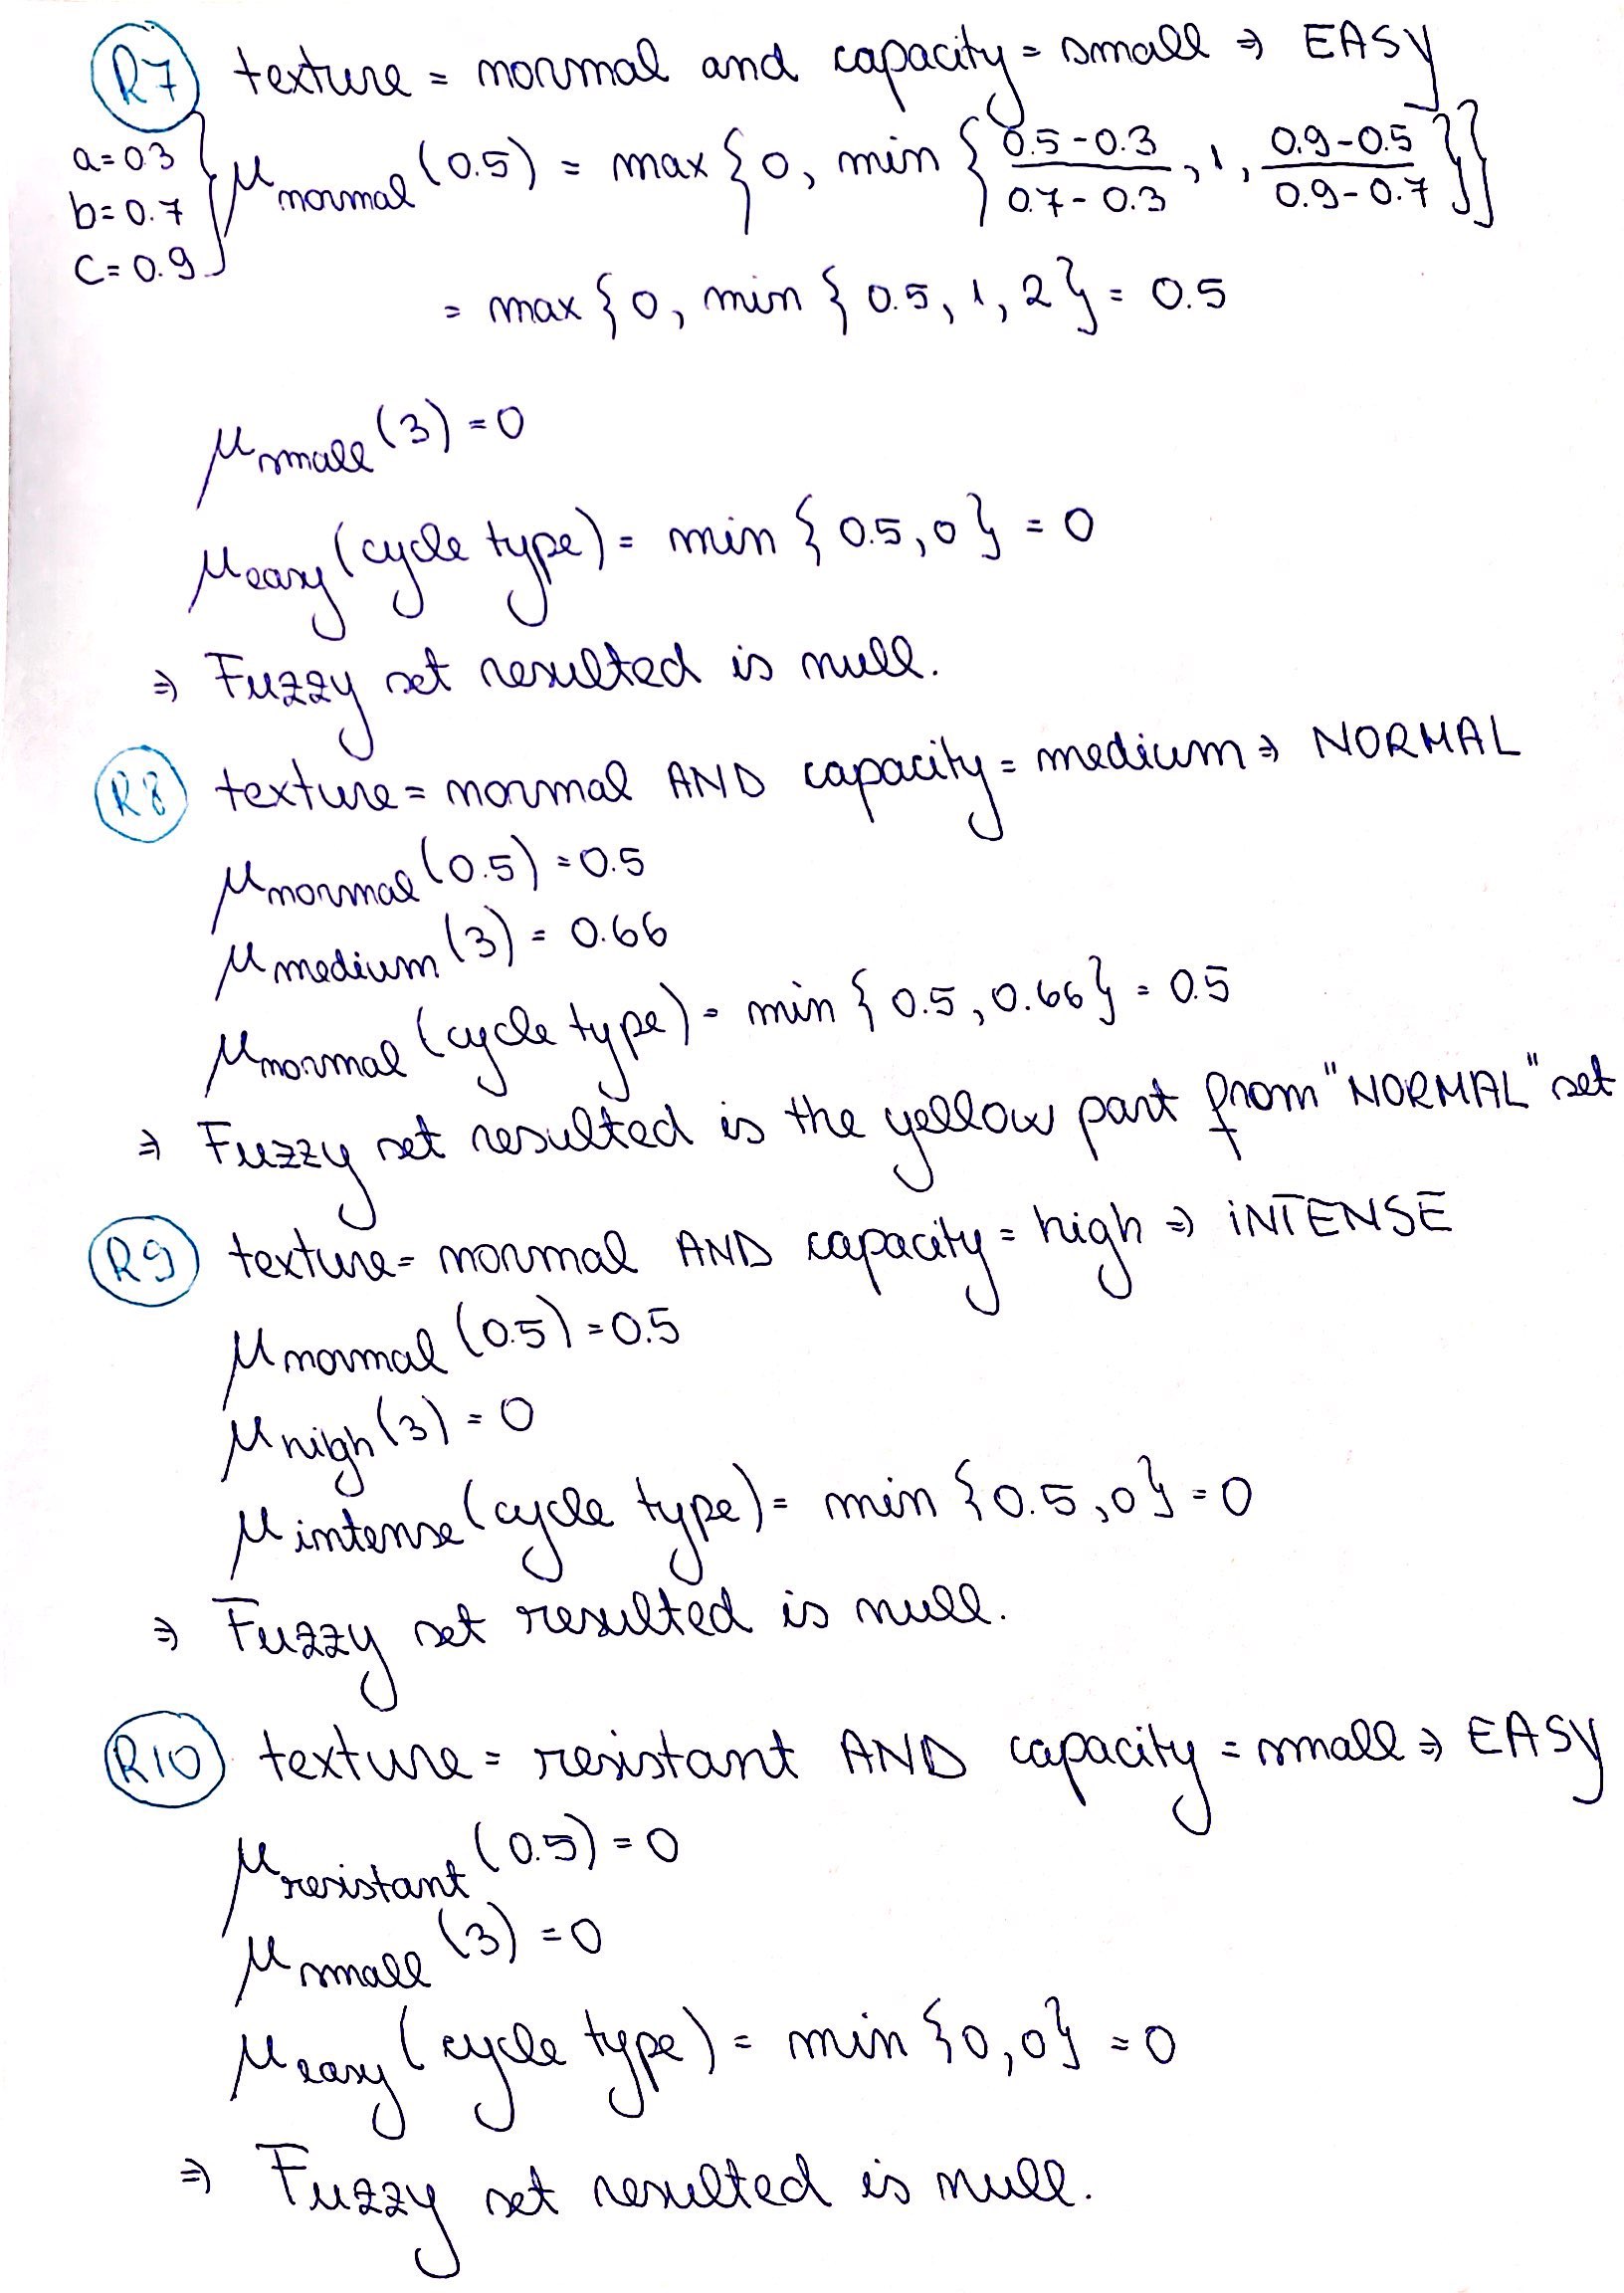 R7 texture = normal and capacity = small ⇒ EASY
a=0.3
b=0.7
c=0.9
μnormal (0.5) = max { 0, min { 0.5-0.3 / 0.7-0.3 , 1, 0.9-0.5 / 0.9-0.7 }}
= max { 0, min { 0.5, 1, 2 } = 0.5
μsmall (3) = 0
μeasy (cycle type) = min { 0.5, 0 } = 0
⇒ Fuzzy set resulted is null.
R8 texture = normal AND capacity = medium ⇒ NORMAL
μnormal (0.5) = 0.5
μmedium (3) = 0.66
μnormal (cycle type) = min { 0.5, 0.66 } = 0.5
⇒ Fuzzy set resulted is the yellow part from "NORMAL" set
R9 texture = normal AND capacity = high ⇒ INTENSE
μnormal (0.5) = 0.5
μhigh (3) = 0
μintense (cycle type) = min { 0.5, 0 } = 0
⇒ Fuzzy set resulted is null.
R10 texture = resistant AND capacity = small ⇒ EASY
μresistant (0.5) = 0
μsmall (3) = 0
μeasy (cycle type) = min { 0, 0 } = 0
⇒ Fuzzy set resulted is null.